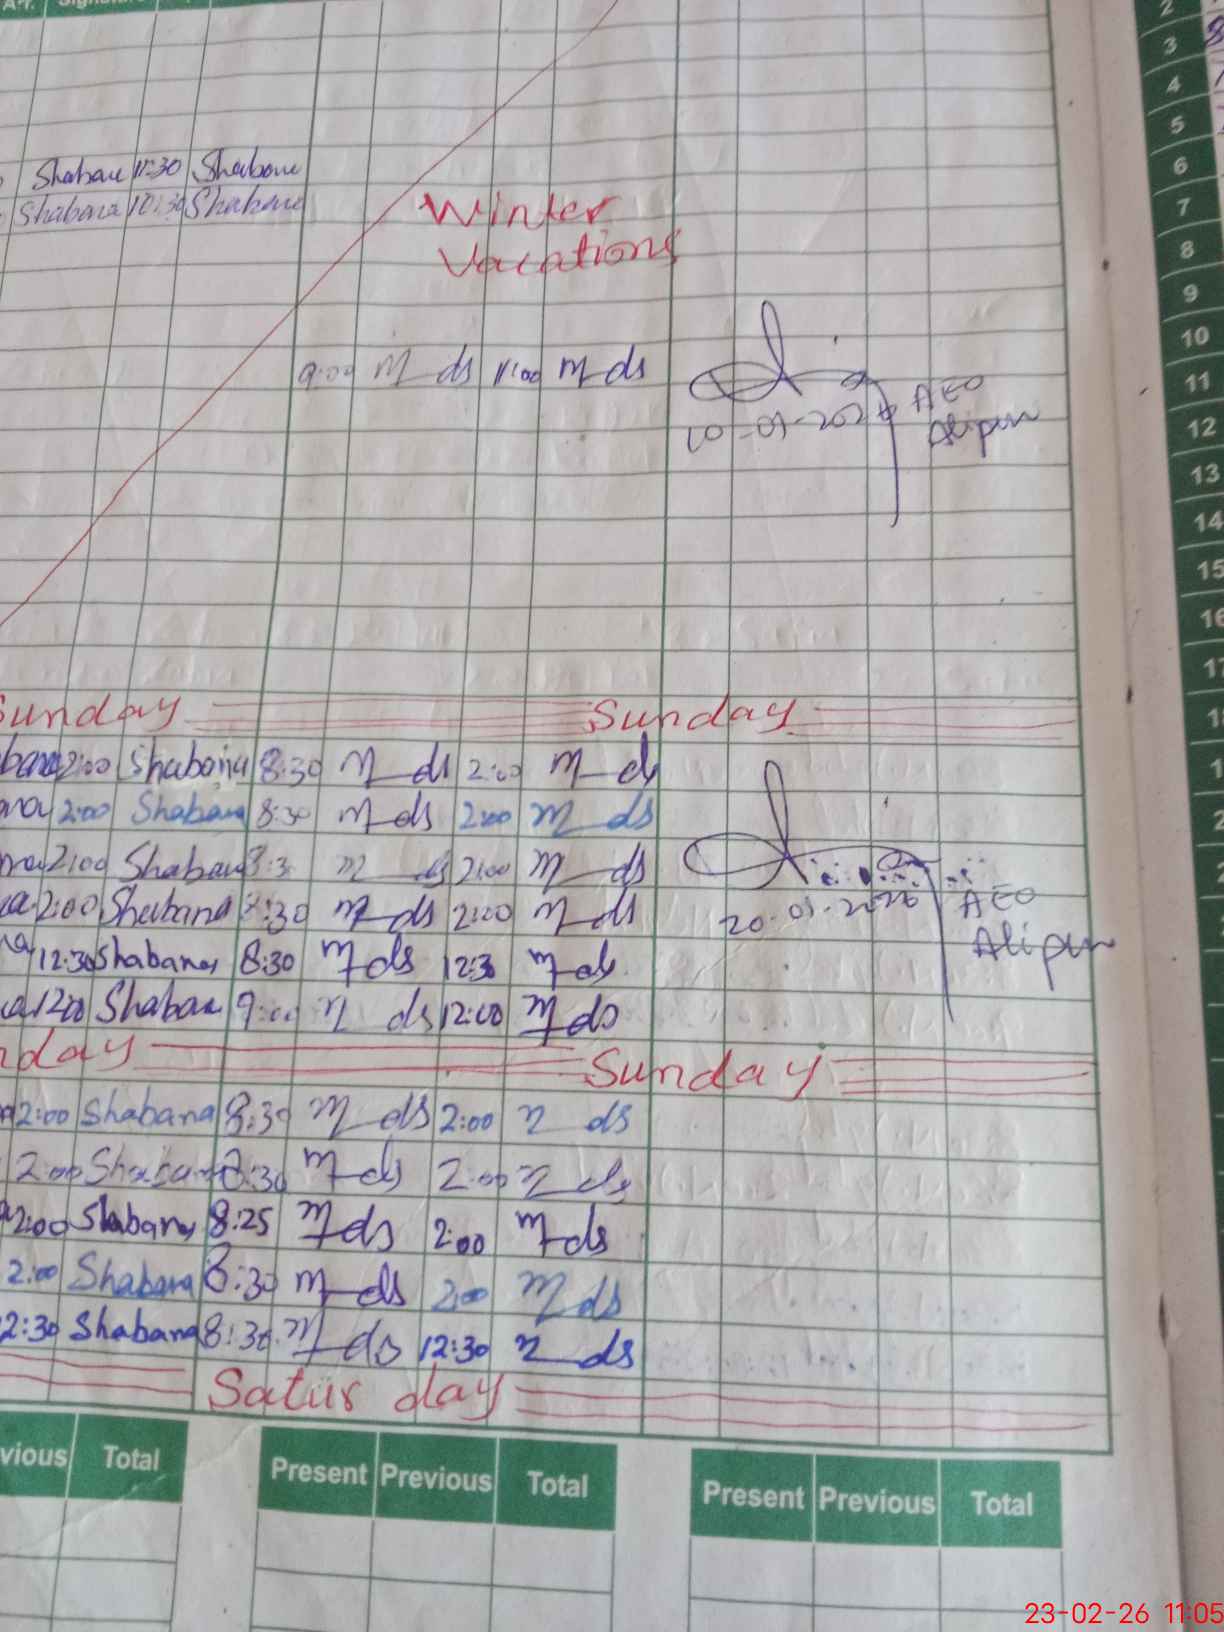 Signature
2
3
4
5
6
7
8
9
10
11
12
13
14
15
16
Shabau 11:30 Shabane
Shabana 10:30 Shabane
Winter
Vacations
9:00 M ds 11:00 M ds
AEO
Alipur
Sunday Sunday
2:00 Shabana 8:30 M ds 2:00 M ds
2:00 Shabana 8:30 M ds 2:00 M ds
2:00 Shabana 8:3 M ds 2:00 M ds
2:00 Shabana 8:30 M ds 2:00 M ds
20-01-2026 AEO
Alipur
12:30 Shabana 8:30 M ds 12:3 M ds
1200 Shabana 9:00 M ds 12:00 M ds
nday Sunday
2:00 Shabana 8:30 M ds 2:00 M ds
2:00 Shabana 8:30 M ds 2:00 M ds
2:00 Shabana 8:25 M ds 2:00 M ds
2:00 Shabana 8:30 M ds 2:00 M ds
2:30 Shabana 8:30 M ds 12:30 M ds
Satur day
vious Total Present Previous Total Present Previous Total
23-02-26 11:05